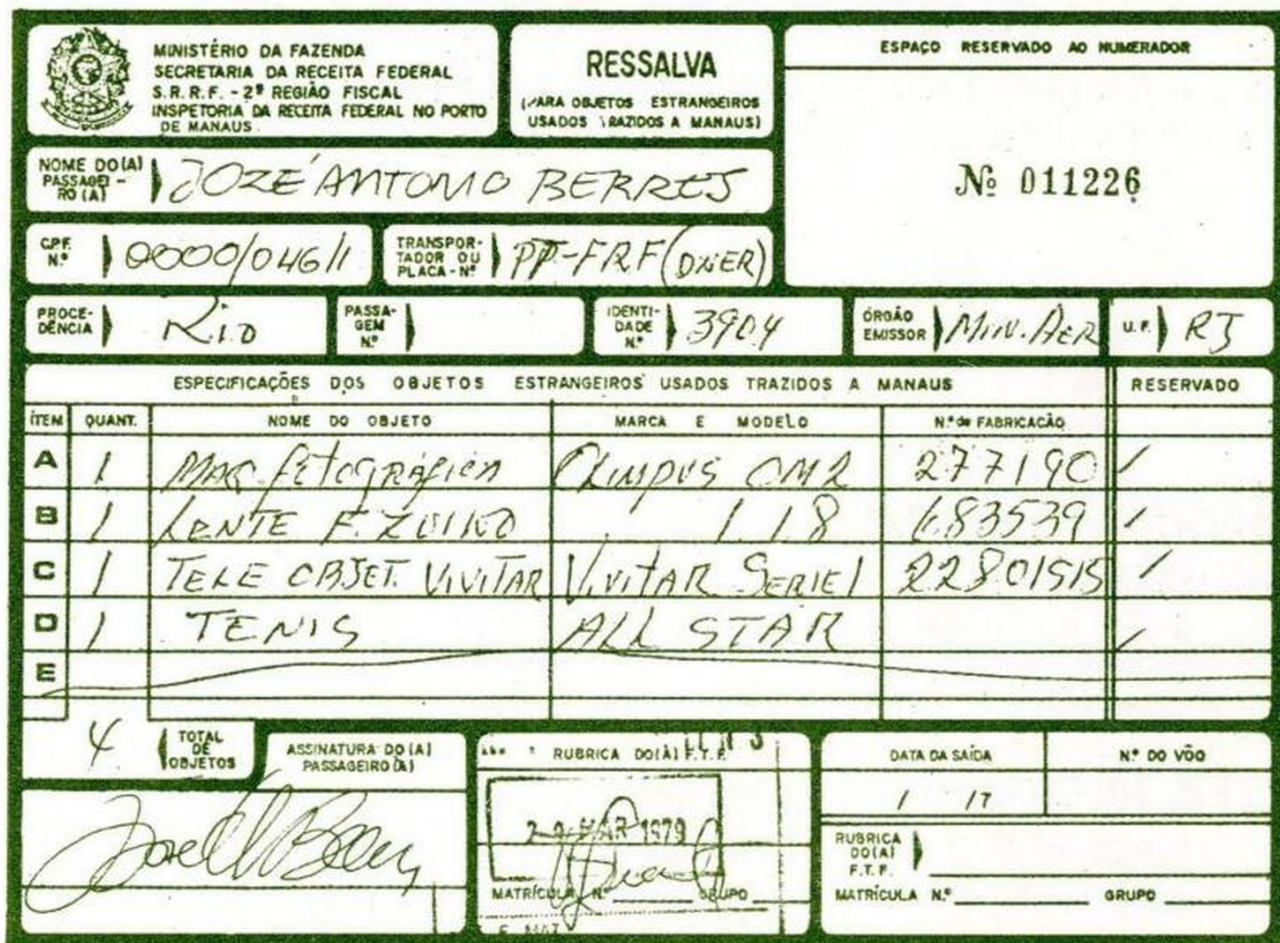 MINISTÉRIO DA FAZENDA
SECRETARIA DA RECEITA FEDERAL
S.R.R.F. - 2ª REGIÃO FISCAL
INSPETORIA DA RECEITA FEDERAL NO PORTO
DE MANAUS
RESSALVA
(PARA OBJETOS ESTRANGEIROS
USADOS TRAZIDOS A MANAUS)
ESPAÇO RESERVADO AO NUMERADOR
Nº 011226
NOME DO(A) PASSAGEIRO(A) JOZÉ ANTONIO BERRES
C.P.F. N.º 0000/046/1
TRANSPORTADOR OU PLACA-Nº PP-FRF (DNER)
PROCEDÊNCIA Rio
PASSAGEM N.º
IDENTIDADE N.º 3904
ÓRGÃO EMISSOR Min. Aer
U.F. RJ
ESPECIFICAÇÕES DOS OBJETOS ESTRANGEIROS USADOS TRAZIDOS A MANAUS RESERVADO
ÍTEM QUANT. NOME DO OBJETO MARCA E MODELO N.º de FABRICAÇÃO
A 1 MAQ. fotográfica Olimpus OM2 277190 /
B 1 LENTE F. ZUIKO 1.1.8 683539 /
C 1 TELE OBJET. VIVITAR VIVITAR SERIE 1 22801515 /
D 1 TENIS ALL STAR /
E
4 TOTAL DE OBJETOS
ASSINATURA DO(A) PASSAGEIRO(A)
RUBRICA DO(A) F.T.F.
MAR 1979
MATRÍCULA N.º GRUPO
DATA DA SAÍDA
N.º DO VÔO
/ /
RUBRICA DO(A) F.T.F.
MATRÍCULA N.º GRUPO